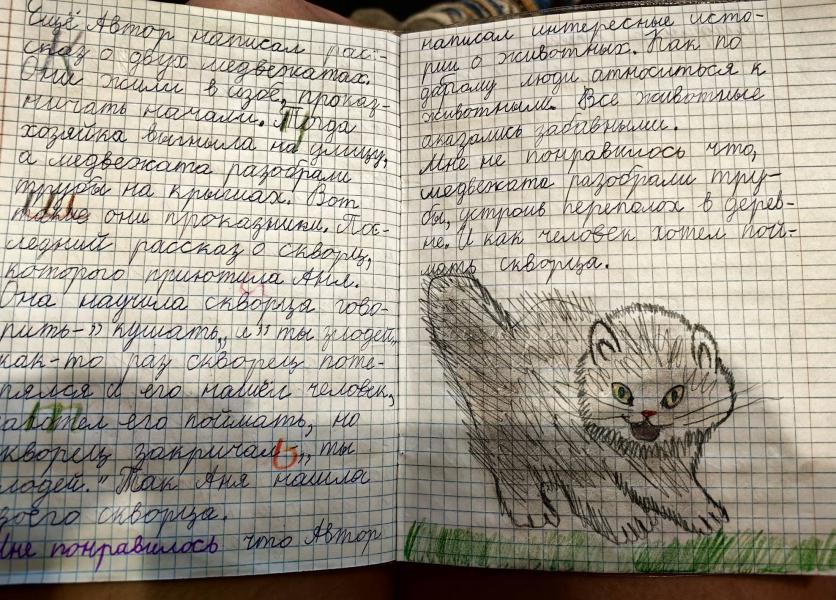 Ещё Автор написал рас-
сказ о двух медвежатах.
Они жили в избе, проказ-
ничать начали. Тогда
хозяйка выгныла на улицу,
а медвежата разобрали
трубы на крышах. Вот
такие они проказники. Пос-
ледний рассказ о скворце,
которого приютила Аня.
Она научила скворца гово-
рить-" кушать„ и" ты злодей„
как-то раз скворец поте-
рялся и его нашёл человек,
захотел его поймать, но
скворец закричал „ты
злодей." Так Аня нашла
своего скворца.
Мне понравилось что Автор
написал интересные исто-
рии о животных. Как по
доброму люди атноситься к
животным. Все животные
аказались забавными.
Мне не понравилось что,
медвежата разобрали тру-
бы, устроив переполох в дерев-
не. И как человек хотел пой-
мать скворца.